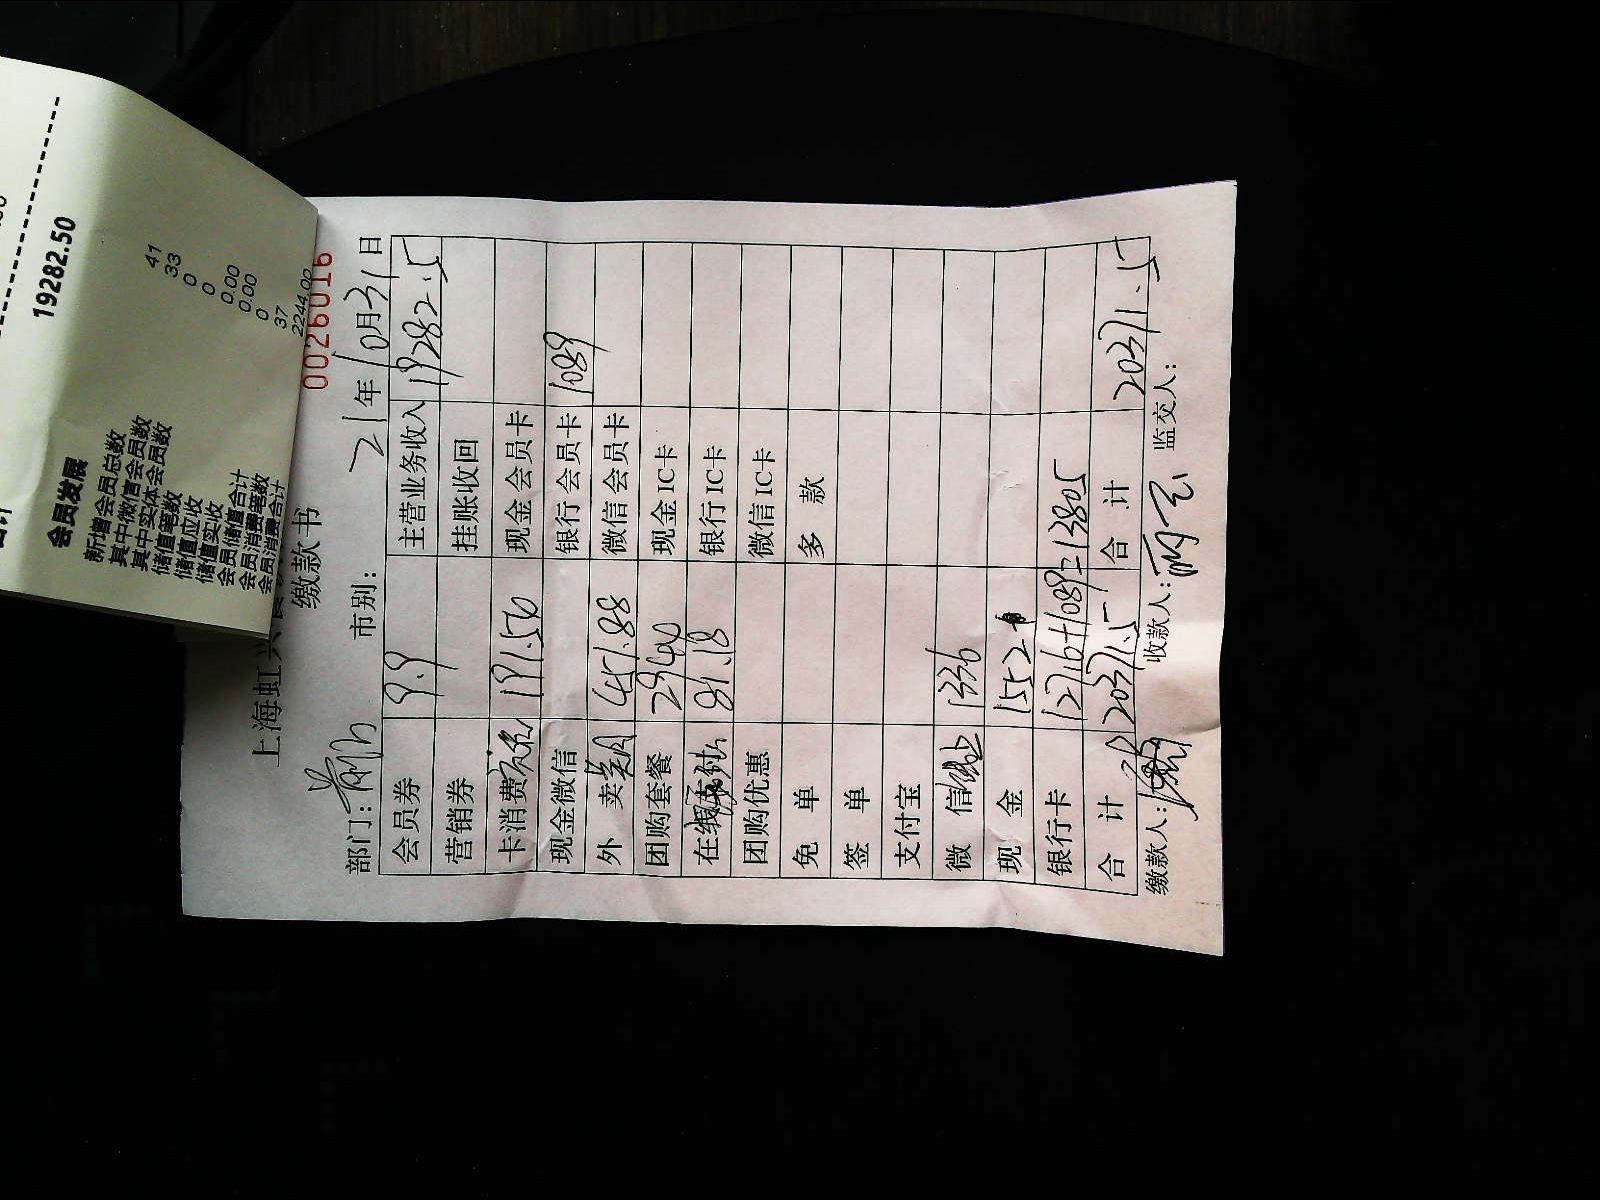 19282.50
会员发展
新增会员总数 41
其中微信会员数 33
其中实体会员数 0
储值笔数 0
储值应收 0.00
储值实收 0.00
会员储值合计 0
会员消费笔数 37
会员消费合计 2244.00
0026016
上海虹兴
缴款书
部门: 市别: 21年10月31日
会员券 9.9 主营业务收入 19282.5
营销券 挂账收回
卡消费 191.56 现金会员卡
现金微信 银行会员卡 1089
外卖 451.88 微信会员卡
团购套餐 2940 现金IC卡
在线支付 81.18 银行IC卡
团购优惠 微信IC卡
免单 多款
签单
支付宝
微信 1336
现金 1552
银行卡 12716+1089=13805
合计 20371.5 合计 20371.5
缴款人: 收款人: 监交人: